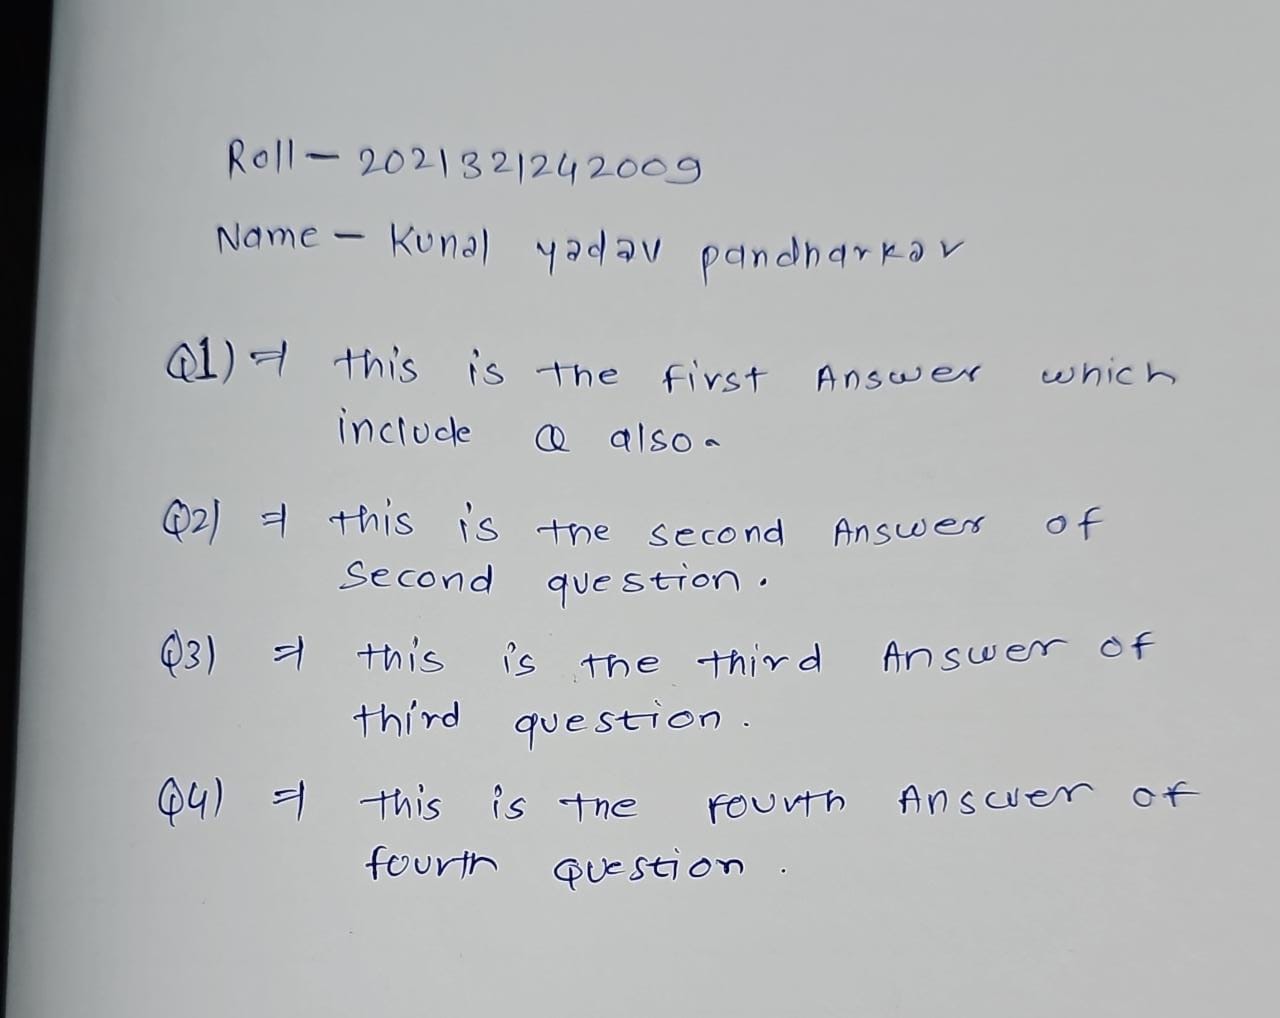 Roll - 2021321242009
Name - Kunal yadav pandharkar
Q1) ⇒ this is the first Answer which
include Q also.
Q2) ⇒ this is the second Answer of
Second question.
Q3) ⇒ this is the third Answer of
third question.
Q4) ⇒ this is the fourth Answer of
fourth Question.